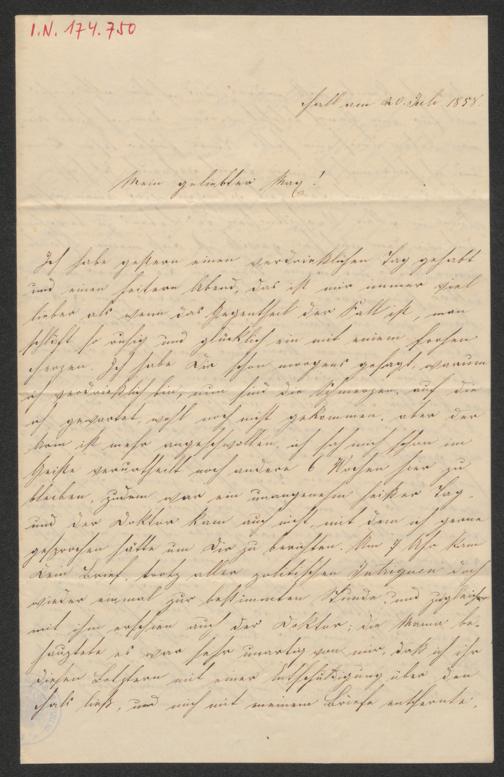 I.N. 174.750
Hall am 20. Juli 1858.
Mein geliebter Max!
Ich habe gestern einen verdrießlichen Tag gehabt
und einen heitern Abend, das ist mir immer viel
lieber als wenn das Gegentheil der Fall ist, man
schläft so ruhig und glücklich ein mit einem frohen
Herzen. Ich habe Dir schon morgens gesagt, warum
ich verdrießlich bin, nun sind die Schmerzen, auf die
ich gewartet wohl noch nicht gekommen, aber der
Arm ist mehr angeschwollen, ich sah mich schon im
Geiste verurtheilt noch andere 6 Wochen hier zu
bleiben, zudem war ein unangenehm heißer Tag,
und der Doktor kam auch nicht, mit dem ich gerne
gesprochen hätte um Dir zu berichten. Um 7 Uhr kam
Dein Brief, trotz aller politischen Intriguen doch
wieder einmal zur bestimmten Stunde, und zugleich
mit ihm erschien auch der Doktor; die Mama be-
hauptete es war sehr unartig von mir, daß ich ihr
diesen Letztern mit einer Entschuldigung über den
Hals ließ, und mich mit meinem Briefe entfernte,